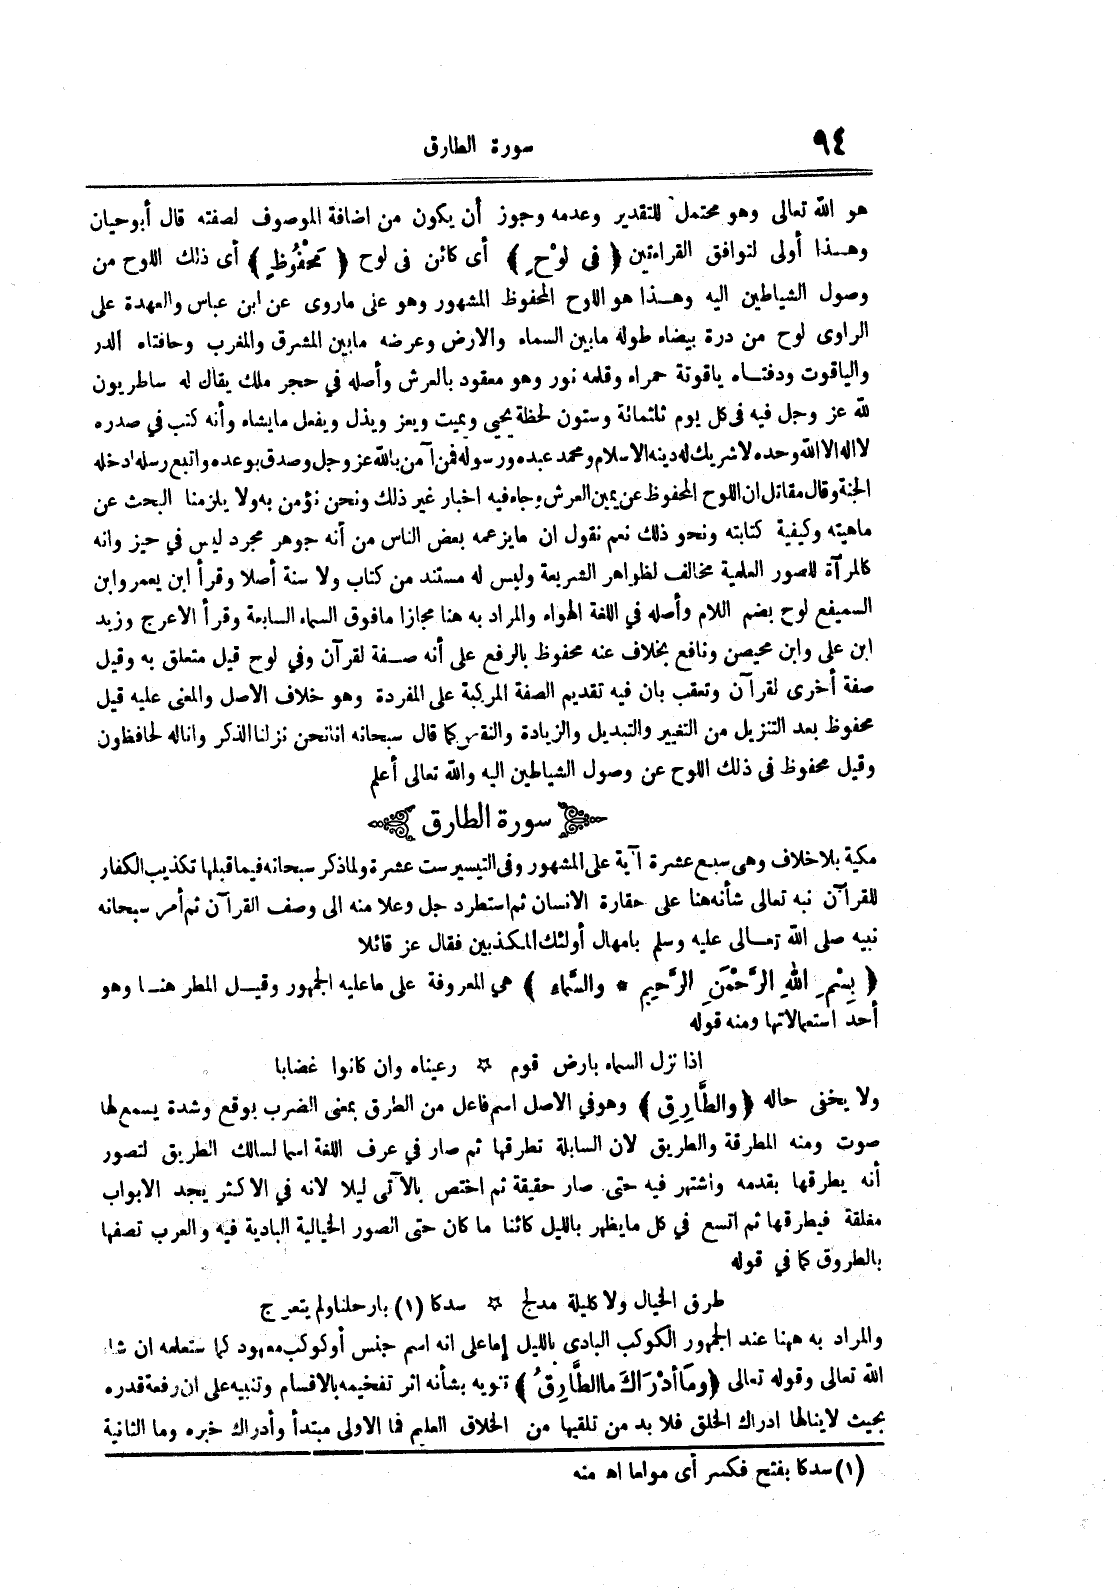 ٩٤
سورة الطارق
هو الله تعالى وهو محتمل للتقدير وعدمه وجوز أن يكون من اضافة الموصوف لصفته قال أبوحيان
وهـذا أولى لتوافق القراءتين ﴿ فى لَوْحٍ ﴾ أى كائن فى لوح ﴿ مَحْفُوظٍ ﴾ أى ذلك اللوح من
وصول الشياطين اليه وهـذا هو اللوح المحفوظ المشهور وهو على ماروى عن ابن عباس والعهدة على
الراوى لوح من درة بيضاء طوله مابين السماء والارض وعرضه مابين المشرق والمغرب وحافتاه الدر
والياقوت ودفتـاه ياقوتة حمراء وقلمه نور وهو معقود بالعرش وأصله في حجر ملك يقال له ساطريون
لله عز وجل فيه فى كل يوم ثلثمائة وستون لحظة يحيى ويميت ويعز ويذل ويفعل مايشاء وأنه كتب في صدره
لااله الا الله وحده لا شريك له دينه الاسلام ومحمد عبده ورسوله فمن آمن بالله عز وجل وصدق بوعده واتبع رسله ادخله
الجنة وقال مقاتل ان اللوح المحفوظ عن يمين العرش وجاء فيه اخبار غير ذلك ونحن نؤمن به ولا يلزمنا البحث عن
ماهيته وكيفية كتابته ونحو ذلك نعم نقول ان مايزعمه بعض الناس من أنه جوهر مجرد ليس في حيز وانه
كالمرآة للصور العلمية مخالف لظواهر الشريعة وليس له مستند من كتاب ولا سنة أصلا وقرأ ابن يعمر وابن
السميفع لوح بضم اللام وأصله في اللغة الهواء والمراد به هنا مجازا مافوق السماء السابعة وقرأ الاعرج وزيد
ابن على وابن محيصن ونافع بخلاف عنه محفوظ بالرفع على أنه صـفة لقرآن وفي لوح قيل متعلق به وقيل
صفة أخرى لقرآن وتعقب بان فيه تقديم الصفة المركبة على المفردة وهو خلاف الاصل والمعنى عليه قيل
محفوظ بعد التنزيل من التغيير والتبديل والزيادة والنقص كما قال سبحانه انا نحن نزلنا الذكر وانا له لحافظون
وقيل محفوظ فى ذلك اللوح عن وصول الشياطين اليه والله تعالى أعلم
سورة الطارق
مكية بلا خلاف وهى سبع عشرة آية على المشهور وفى التيسير ست عشرة ولما ذكر سبحانه فيما قبلها تكذيب الكفار
للقرآن نبه تعالى شأنه هنا على حقارة الانسان ثم استطرد جل وعلا منه الى وصف القرآن ثم أمر سبحانه
نبيه صلى الله تعـالى عليه وسلم بامهال أولئك المكذبين فقال عز قائلا
﴿ بِسْمِ اللهِ الرَّحْمَنِ الرَّحِيمِ * والسَّماءِ ﴾ هي المعروفة على ما عليه الجمهور وقيـل المطر هنـا وهو
أحد استعمالاتها ومنه قوله
اذا نزل السماء بارض قوم ✩ رعيناه وان كانوا غضابا
ولا يخفى حاله ﴿ والطَّارِقِ ﴾ وهو في الاصل اسم فاعل من الطرق بمعنى الضرب بوقع وشدة يسمع لها
صوت ومنه المطرقة والطريق لان السابلة تطرقها ثم صار في عرف اللغة اسما لسالك الطريق لتصور
أنه يطرقها بقدمه واشتهر فيه حتى صار حقيقة ثم اختص بالآتى ليلا لانه في الاكثر يجد الابواب
مغلقة فيطرقها ثم اتسع في كل مايظهر بالليل كائنا ما كان حتى الصور الخيالية البادية فيه والعرب تصفها
بالطروق كما في قوله
طرق الخيال ولا كليلة مدلج ✩ سدكا (١) بارحلنا ولم يتعرج
والمراد به ههنا عند الجمهور الكوكب البادى بالليل إما على انه اسم جنس أو كوكب معهود كما ستعلمه ان شاء
الله تعالى وقوله تعالى ﴿وما أدْرَاكَ ما الطَّارِقُ﴾ تنويه بشأنه اثر تفخيمه بالاقسام وتنبيه على ان رفعة قدره
بحيث لاينالها ادراك الخلق فلا بد من تلقيها من الخلاق العليم فما الاولى مبتدأ وأدراك خبره وما الثانية
(١) سدكا بفتح فكسر أى مولعا اه منه